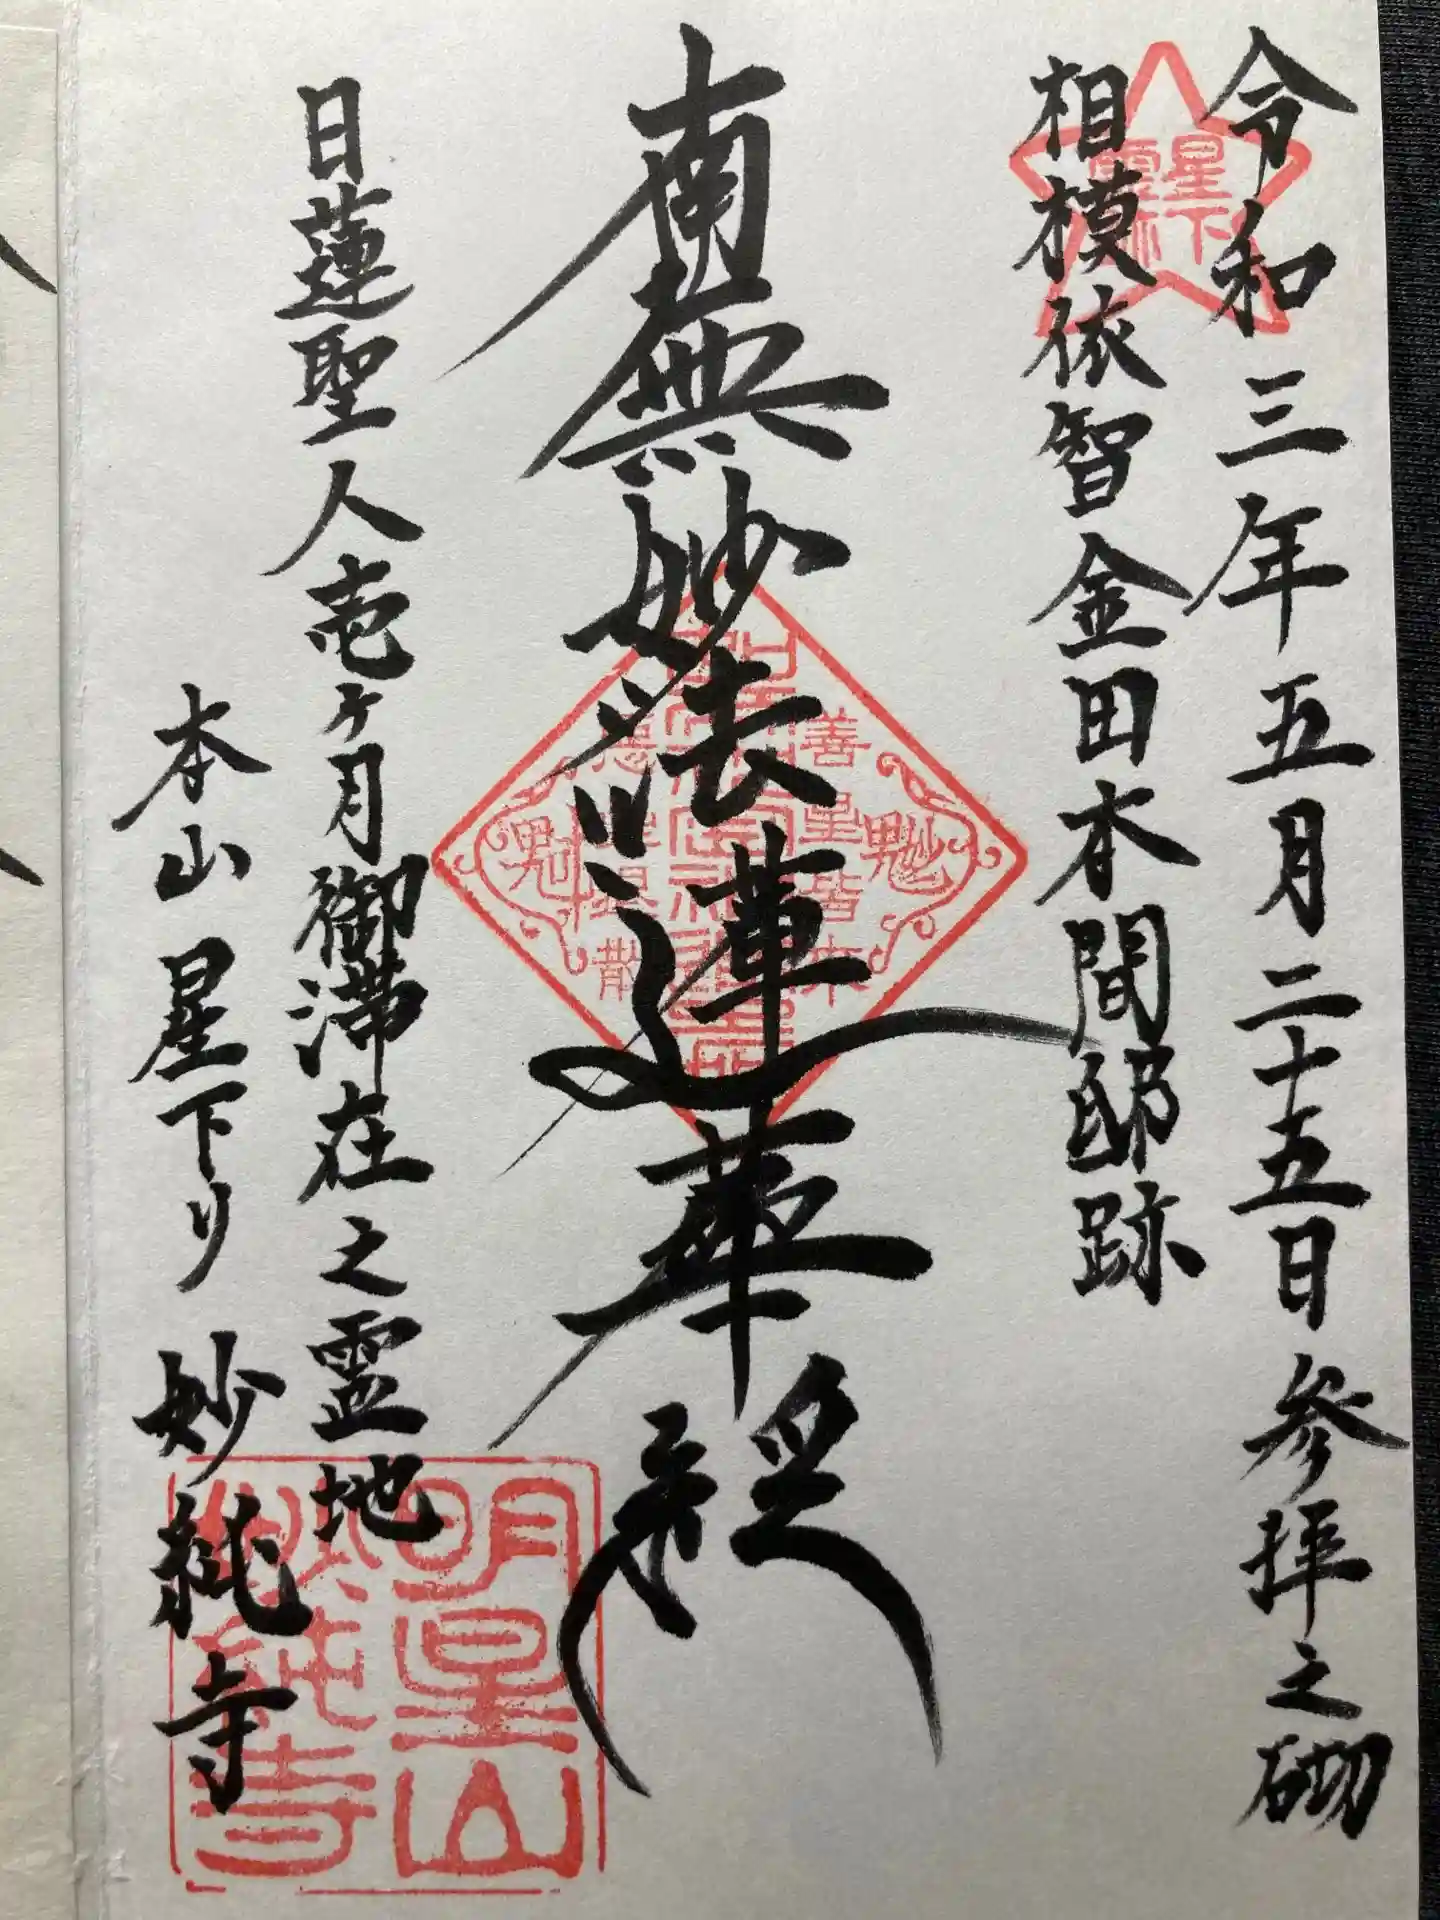 令和三年五月二十五日参拝之砌
星下
霊跡
相模依智金田本間邸跡
南無妙法蓮華経
善星皆来
悪星退散
日蓮聖人壱ヶ月御滞在之霊地
本山 星下り 妙純寺
明星山
妙純寺